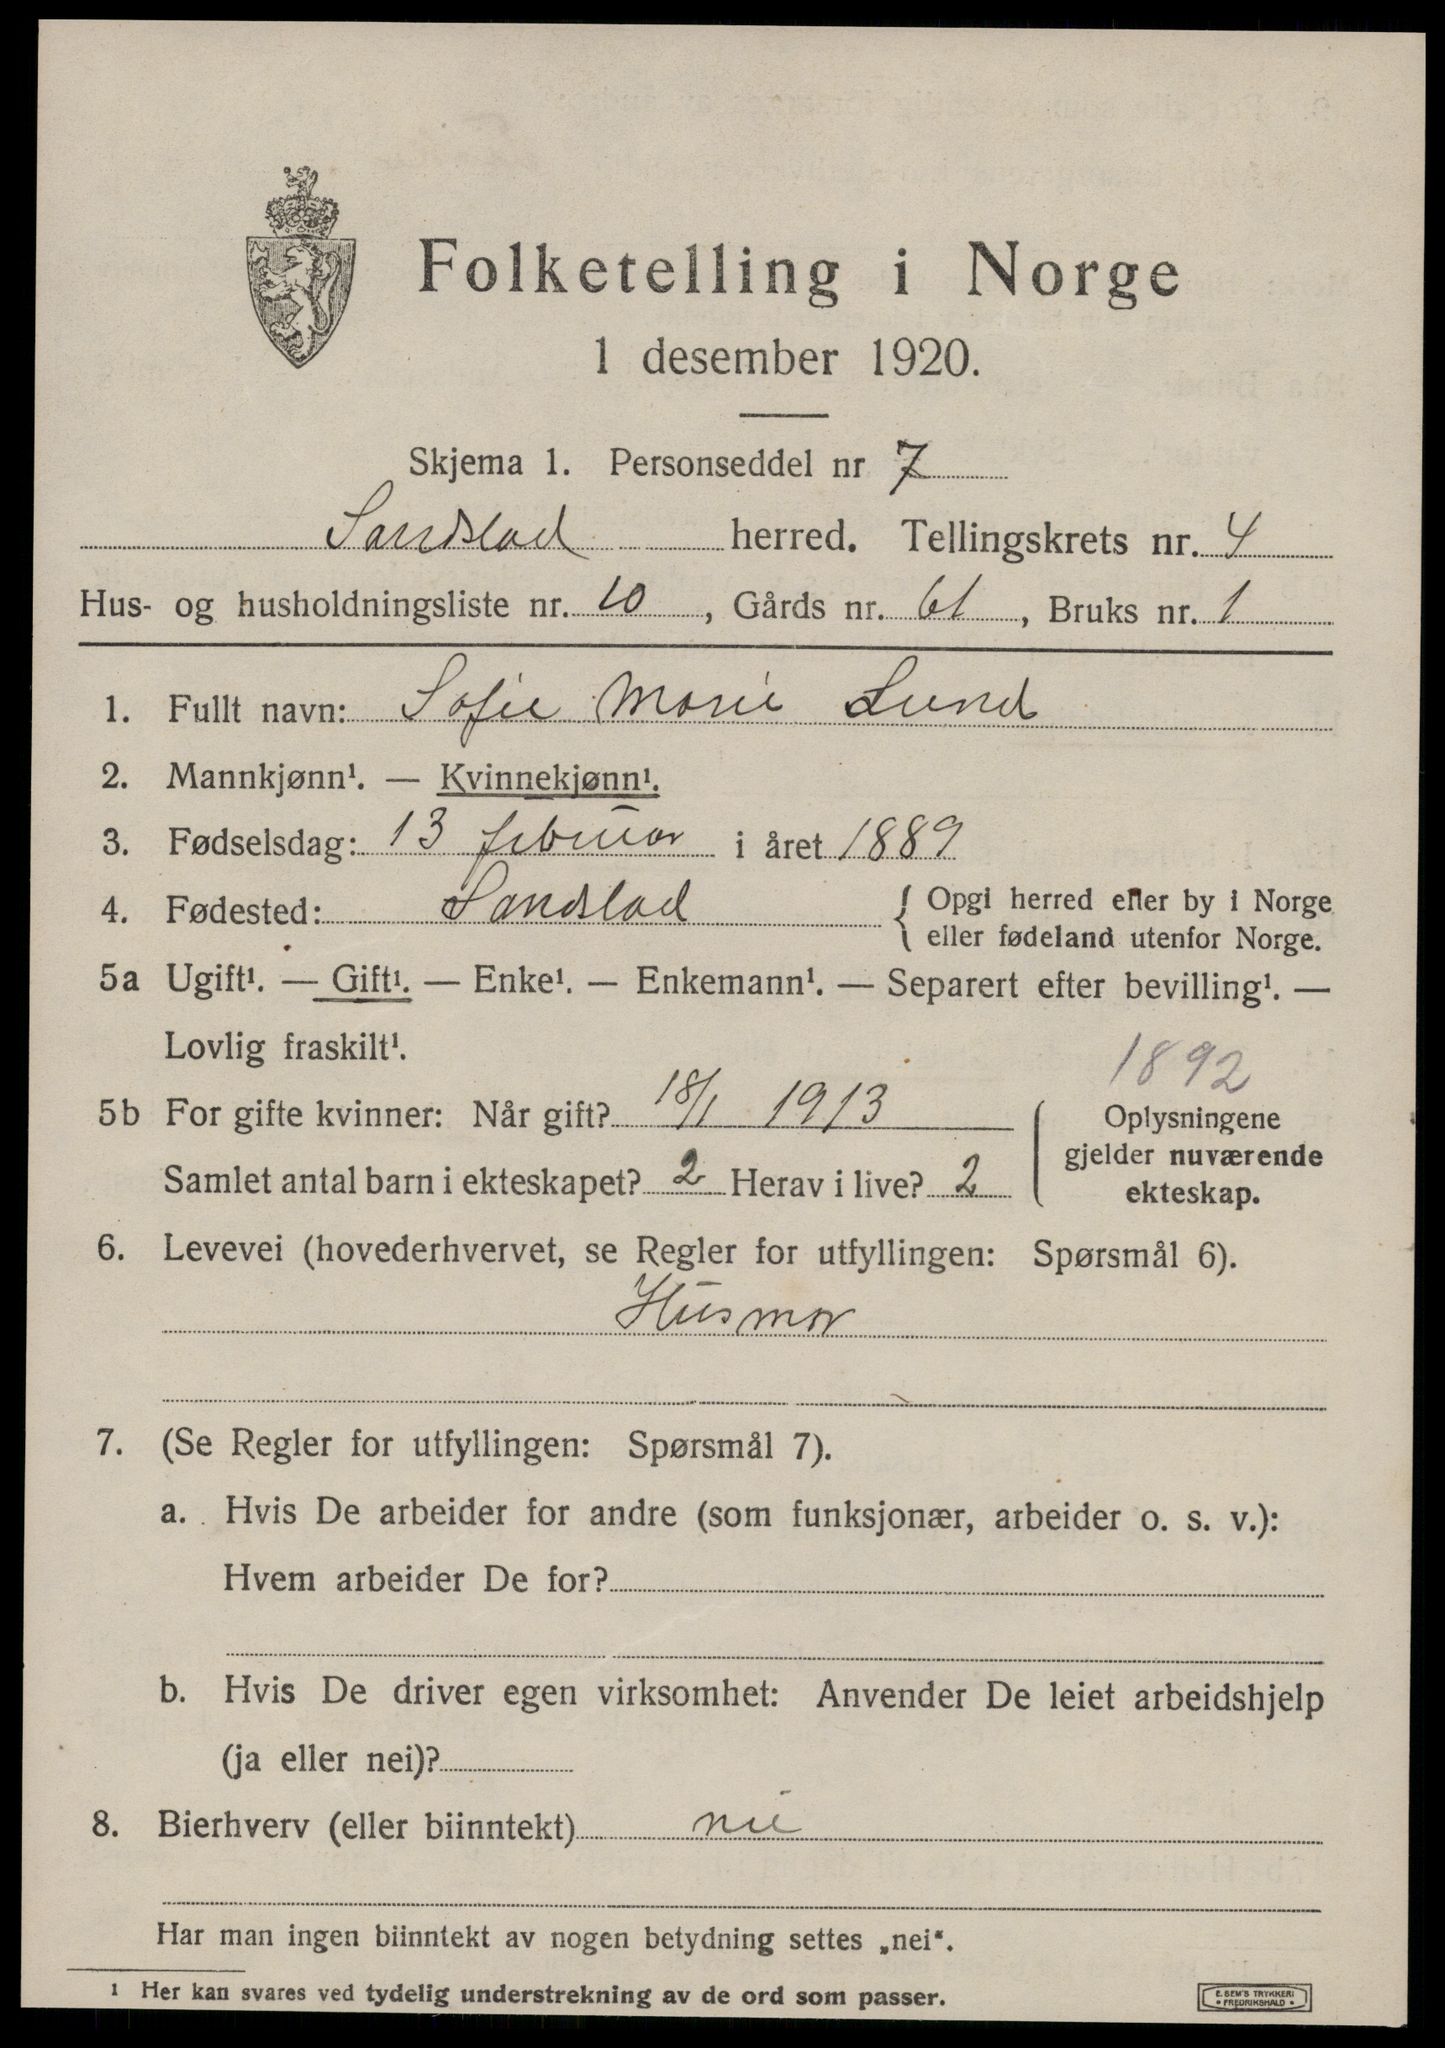 Folketelling i Norge
1 desember 1920.
Skjema 1. Personseddel nr 7
Sandstad herred. Tellingskrets nr. 4
Hus- og husholdningsliste nr. 10, Gårds nr. 61, Bruks nr. 1
1. Fullt navn: Sofie Marie Lund
2. Mannkjønn¹. — Kvinnekjønn¹.
3. Fødselsdag: 13 februar i året 1889
4. Fødested: Sandstad { Opgi herred eller by i Norge
eller fødeland utenfor Norge.
5a Ugift¹. — Gift¹. — Enke¹. — Enkemann¹. — Separert efter bevilling¹. —
Lovlig fraskilt¹.
1892
5b For gifte kvinner: Når gift? 18/1 1913
Samlet antal barn i ekteskapet? 2 Herav i live? 2
Oplysningene
gjelder nuværende
ekteskap.
6. Levevei (hovederhvervet, se Regler for utfyllingen: Spørsmål 6).
Husmor
7. (Se Regler for utfyllingen: Spørsmål 7).
a. Hvis De arbeider for andre (som funksjonær, arbeider o. s. v.):
Hvem arbeider De for?
b. Hvis De driver egen virksomhet: Anvender De leiet arbeidshjelp
(ja eller nei)?
8. Bierhverv (eller biinntekt) nei
Har man ingen biinntekt av nogen betydning settes „nei“.
1 Her kan svares ved tydelig understrekning av de ord som passer.
E. SEM'S TRYKKERI
• FREDRIKSHALD •